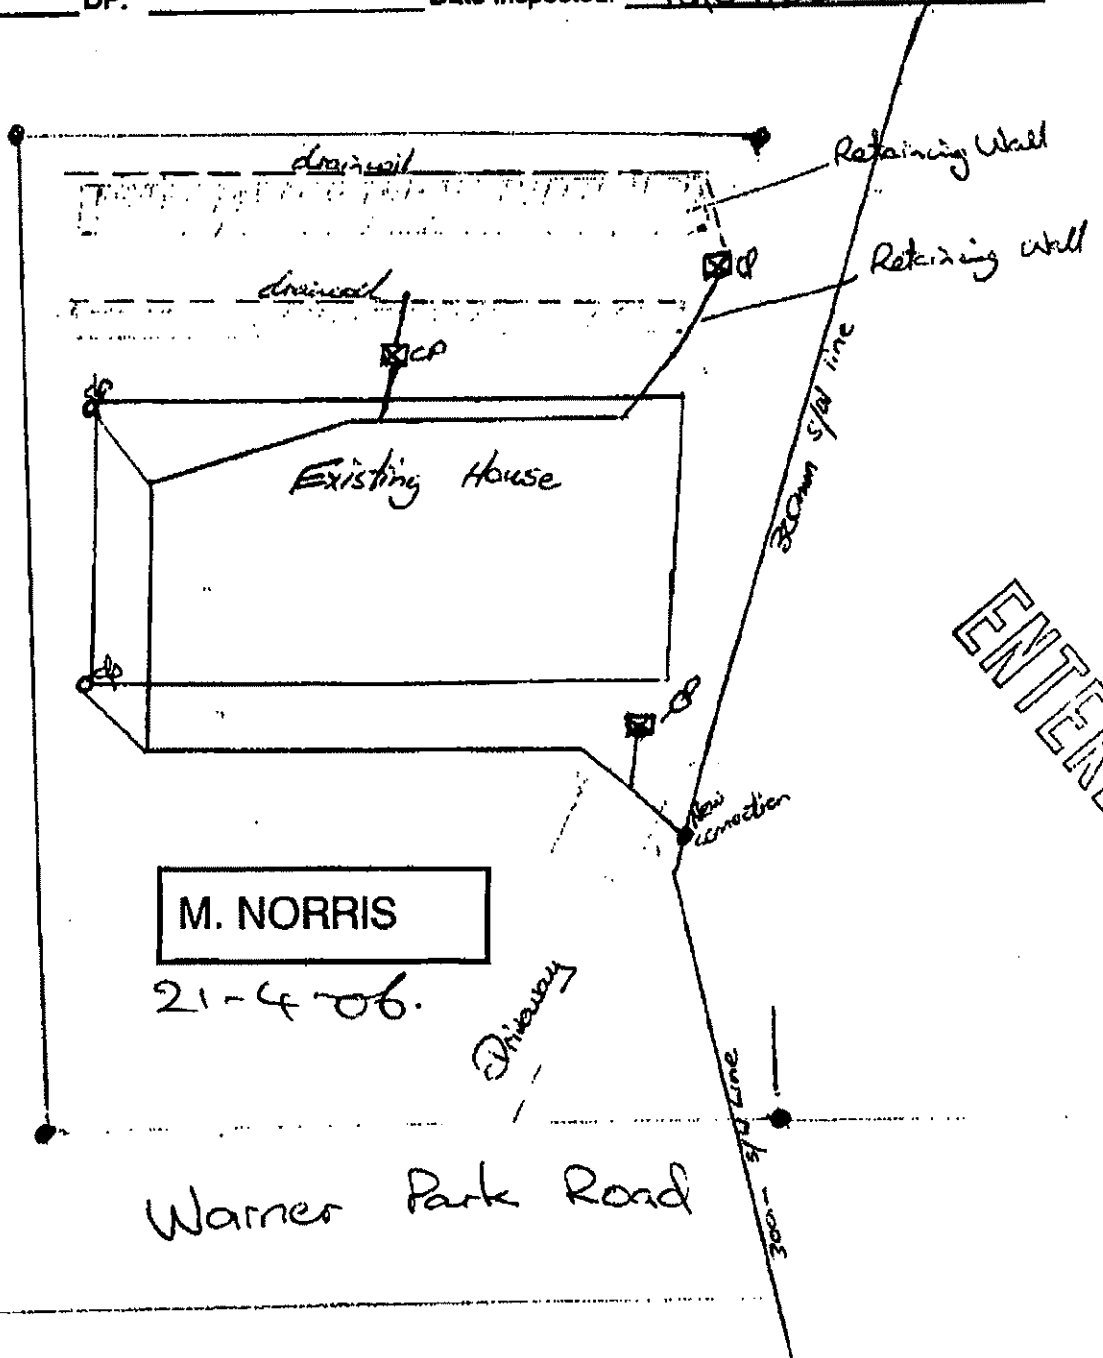 DP:
Date Inspected:
draincoil
Retaining Wall
CP
Retaining Wall
draincoil
CP
dp
Existing House
300mm s/w line
dp
CP
New
connection
ENTERE
M. NORRIS
21-4-06.
Driveway
s/w Line
Warner Park Road